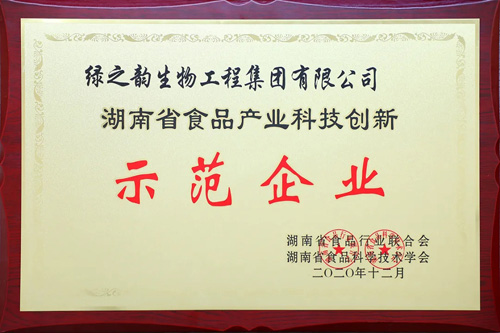 绿之韵生物工程集团有限公司
湖南省食品产业科技创新
示范企业
湖南省食品行业联合会
湖南省食品科学技术学会
二〇二〇年十二月